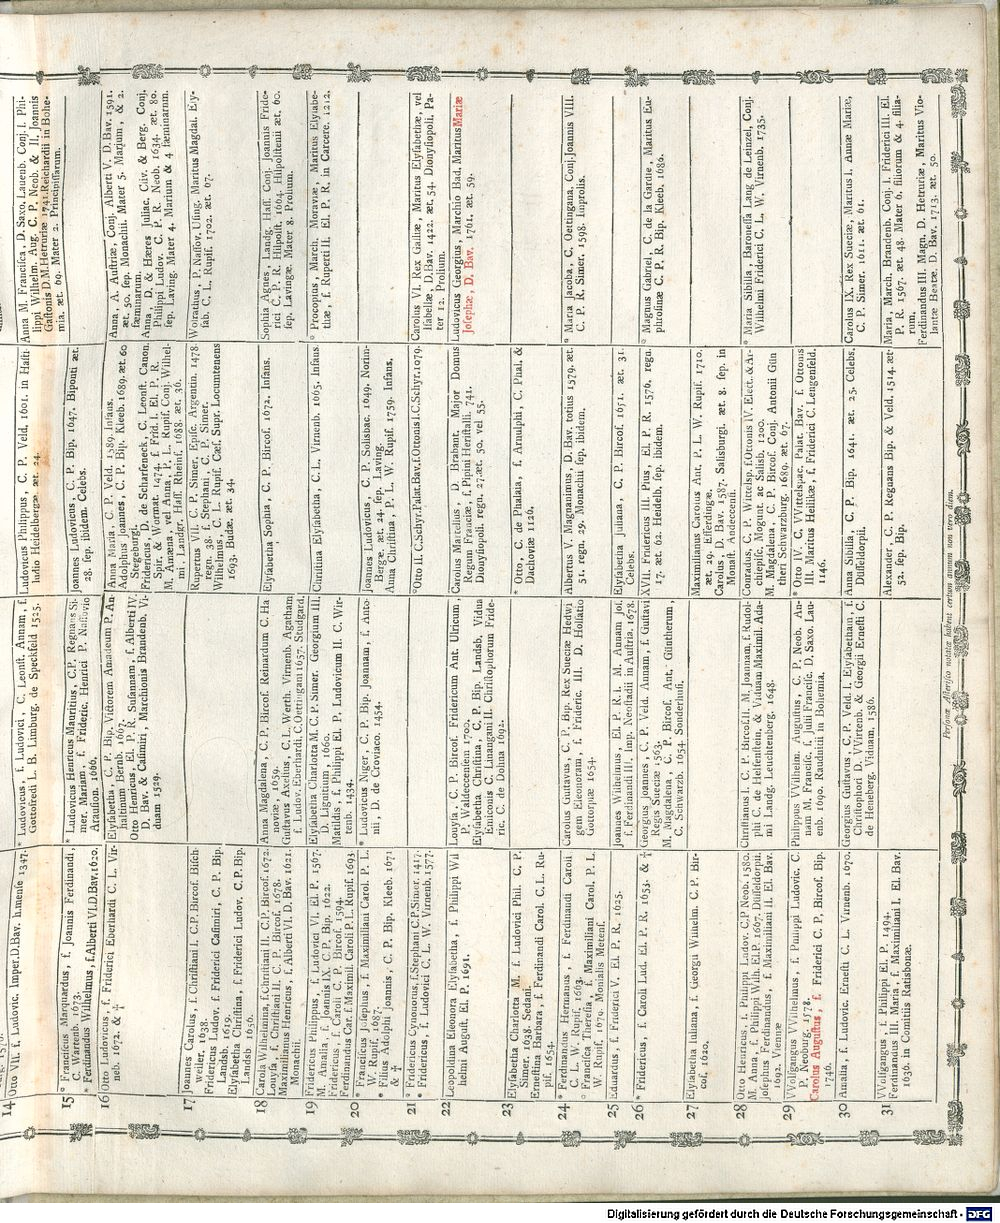 14 Otto VII. f. Ludovic. Imper. D. Bav. h. mense 1347.
15 ° Franciscus Marquardus, f. Joannis Ferdinandi,
C. Wartenb. 1673.
* Ferdinandus Wilhelmus, f. Alberti VI. D. Bav. 1620.
16 Otto Ludovicus, f. Friderici Eberhardi C. L. Vir-
neb. 1672. & †
17 Joannes Carolus, f. Christiani I. C. P. Bircof. Bisch-
weiler, 1638.
Fridericus Ludov. f. Friderici Casimiri, C. P. Bip.
Landsb. 1619.
Elysabetha Christina, f. Friderici Ludov. C. P. Bip.
Landsb. 1656.
18 Carola Wilhelmina, f. Christiani II. C. P. Bircof. 1672.
Louysa, f. Christiani II. C. P. Bircof. 1678.
Maximilianus Henricus, f. Alberti VI. D. Bav. 1621.
Monachii.
19 Fridericus Philippus, f. Ludovici VI. El. P. 1567.
M. Amalia, f. Joannis IX. C. P. Bip. 1622.
Ludovicus, f. Caroli C. P. Bircof. 1594.
Ferdinandus Car. f. Maximil. Caroli P. L. Rupif. 1693.
20 ° Franciscus Josephus, f. Maximiliani Carol. P. L.
W. Rupif. 1687.
* Filius Adolphi Joannis, C. P. Bip. Kleeb. 1671.
& †
21 ° Fridericus Cynonotus, f. Stephani C. P. Simer. 1417.
° Fridericus, f. Ludovici C. L. W. Virnenb. 1577.
22 Leopoldina Eleonora Elysabetha, f. Philippi Wil
helmi August. El. P. 1691.
23 Elysabetha Charlotta M. f. Ludovici Phil. C. P.
Simer. 1638. Sedani.
Ernestina Barbara, f. Ferdinandi Carol. C. L. Ru-
pif. 1654.
24 ° Ferdinandus Hermanus, f. Ferdinandi Caroli
C. L. W. Rupif. 1603.
° Francisca Theresia, f. Maximiliani Carol. P. L.
W. Rupif. 1670. Monialis Metens.
25 Eduardus, f. Friderici V. El. P. R. 1625.
26 * Fridericus, f. Caroli Lud. El. P. R. 1653. & †
27 Elysabetha Juliana, f. Georgii Wilhelm. C. P. Bir-
cof. 1620.
28 Otto Henricus, f. Philippi Ludov. C. P. Neob. 1580.
M. Anna, f. Philippi Wilh. El. P. 1667. Düsseldorpii.
Josephus Ferdinandus, f. Maximiliani II. El. Bav.
1692. Viennæ
29 Wolfgangus Wilhelmus, f. Philippi Ludovic. C.
P. Neoburg. 1578.
Carolus Augustus, f. Friderici C. P. Bircof. Bip.
1746.
30 Amalia, f. Ludovic. Ernesti C. L. Virnenb. 1670.
31 Wolfgangus, f. Philippi El. P. 1494.
Ferdinandus III. Maria, f. Maximiliani I. El. Bav.
1636. in Comitiis Ratisbonæ.
* Ludovicus, f. Ludovici, C. Leonst. Annam, f.
Gottofredi L. B. Limburg. de Speckfeld 1525.
* Ludovicus Henricus Mauritius, C. P. Regnans Si-
mer. Mariam, f. Frideric. Henrici P. Nassovio
Arausion. 1666.
Elysabetha, C. P. Bip. Victorem Amadeum P. An-
haltinum Bernb. 1667.
Otto Henricus, El. P. R. Susannam, f. Alberti IV.
D. Bav. & Casimiri, Marchionis Brandenb. Vi-
duam 1529.
Anna Magdalena, C. P. Bircof. Reinardum C. Ha
noviæ, 1659.
Gustavus Axelius, C. L. Werth. Virnenb. Agatham
f. Ludov. Eberhardi. C. Oettingani 1657. Studgard.
Elysabetha Charlotta M. C. P. Simer. Georgium III.
D. Lignitium, 1660.
Matildis, f. Philippi El. P. Ludovicum II. C. Wir-
tenb. 1434.
* Ludovicus Niger, C. P. Bip. Joannam, f. Anto
nii, D. de Croviaco. 1454.
Louysa, C. P. Bircof. Fridericum Ant. Ulricum,
P. Waldeccensem 1700.
Elysabetha Christina, C. P. Bip. Landsb. Vidua
Eniconis C. Linaangani II. Christophorum Fride-
ric. C. de Dohna 1692.
Carolus Gustavus, C. P. Bip. Rex Sueciæ Hedvi
gem Eleonoram, f. Frideric. III. D. Holsatio
Gottorpiæ 1654.
Joannes Wilhelmus, El. P. R. I. M. Annam Jos.
f. Ferdinandi III. Imp. Neostadii in Austria. 1678.
Georgius Joannes, C. P. Veld. Annam, f. Gustavi
Regis Sueciæ 1563.
M. Magdalena, C. P. Bircof. Ant. Güntherum,
C. Schwarzb. 1654. Sonderhusii.
Christianus I. C. P. Bircof. II. M. Joannam, f. Rudol-
phi C. de Helfenstein, & Viduam Maximil. Ada-
mi Landg. Leuchtenberg. 1648.
Philippus Wilhelm. Augustus, C. P. Neob. An-
nam M. Francisc. f. Julii Francisc. D. Saxo. Lau-
enb. 1690. Raudnitii in Bohemia.
Georgius Gustavus, C. P. Veld. I. Elysabetham, f.
Christophori D. Wirtenb. & Georgii Ernesti C.
de Heneberg. Viduam. 1586.
Ludovicus Philippus, C. P. Veld. 1601. in Hasti-
ludio Heidelbergæ æt. 24.
Joannes Ludovicus, C. P. Bip. 1647. Biponti æt.
28. sep. ibidem. Celebs.
Anna Maria, C. P. Veld. 1589. Infans.
Adolphus Joannes, C. P. Bip. Kleeb. 1689. æt. 60
Stegeburgi.
Fridericus, D. de Scharfeneck, C. Leonst. Canon.
Spir. & Wormat. 1474. f. Frid. I. El. P. R.
M. Annæna, vel Anna, P. L. Rupif. Conj. Wilhel-
mi, Landgr. Hass. Rheinf. 1688. æt. 36.
Rupertus VII. C. P. Simer. Episc. Argentin. 1478.
regn. 38. f. Stephani, C. P. Simer.
Wilhelmus, C. L. Rupif. Cæs. Supr. Locumtenens
1693. Budæ, æt. 34.
Elysabetha Sophia, C. P. Bircof. 1672. Infans.
Christina Elysabetha, C. L. Virnenb. 1665. Infans.
Joannes Ludovicus, C. P. Solisbac. 1649. Norim-
bergæ, æt. 24. sep. Laving.
Anna Christina, P. L. W. Rupif. 1759. Infans.
° Otto II. C. Schyr. Palat. Bav. f. Ottonis I. C. Schyr. 1079.
Carolus Marcellus, D. Brabant. Major Domus
Regum Franciæ, f. Pipini Heristalli. 741.
Dionysiopoli. regn. 27. æt. 50. vel 55.
* Otto, C. de Phalaia, f. Arnulphi, C. Phal. &
Dachoviæ 1126.
Albertus V. Magnanimus, D. Bav. totius 1579. æt.
51. regn. 29. Monachii sep. ibidem.
Elysabetha Juliana, C. P. Bircof. 1651. æt. 31.
Celebs.
XVII. Fridericus III. Pius, El. P. R. 1576. regn.
17. æt. 62. Heidelb. sep. ibidem.
Maximilianus Carolus Ant. P. L. W. Rupif. 1710.
æt. 29. Efferdingæ.
Carolus, D. Bav. 1587. Salisburgi. æt. 8. sep. in
Monast. Andeccensi.
Conradus, C. P. Wittelsp. f. Ottonis IV. Elect. & Ar-
chiepisc. Mogunt. ac Salisb. 1200.
M. Magdalena, C. P. Bircof. Conj. Antonii Gün
theri Schwarzburg. 1689. æt. 67.
* Otto IV. C. Wittelspac. Palat. Bav. f. Ottonis
III. Maritus Heilikæ, f. Friderici C. Lengenfeld.
1146.
Anna Sibilla, C. P. Bip. 1641. æt. 25. Celebs.
Düsseldorpii.
Alexander, C. P. Regnans Bip. & Veld. 1514. æt
52. sep. Bip.
Anna M. Francisca, D. Saxo. Lauenb. Conj. I. Phi-
lippi Wilhelm. Aug. C. P. Neob. & II. Joannis
Gastonis D. M. Hetruriæ 1741. Reichardii in Bohe-
mia. æt. 69. Mater 2. Principissarum.
Anna, A. Austriæ, Conj. Alberti V. D. Bav. 1591.
æt. 50. sep. Monachii. Mater 5. Marium, & 2.
fæminarum.
Anna, D. & Hæres Juliac. Cliv. & Berg. Conj.
Philippi Ludov. C. P. R. Neob. 1634. æt. 80.
sep. Laving. Mater 4. Marium & 4 fæminarum.
Wolrathus, P. Nassov. Using. Maritus Magdal. Ely-
sab. C. L. Rupif. 1702. æt. 67.
Sophia Agnes, Landg. Hass. Conj. Joannis Fride-
rici C. P. R. Hilpolst. 1664. Hilpolstenii æt. 60.
sep. Lavingæ. Mater 8. Prolium.
° Procopius, March. Moraviæ, Maritus Elysabe-
thæ, f. Ruperti III. El. P. R. in Carcere. 1212.
Carolus VI. Rex Galliæ, Maritus Elysabethæ, vel
Isabellæ, D. Bav. 1422. æt. 54. Dionysiopoli. Pa-
ter 12. Prolium.
Ludovicus Georgius, Marchio Bad. Maritus Mariæ
Josephæ, D. Bav. 1761. æt. 59.
° Maria Jacoba, C. Oettingana, Conj. Joannis VIII.
C. P. R. Simer. 1598. Improlis.
° Magnus Gabriel, C. de la Gardie, Maritus Eu-
phrosinæ C. P. R. Bip. Kleeb. 1686.
° Maria Sibilla, Baronessa Lang de Leinzel, Conj.
Wilhelmi Friderici C. L. W. Virnenb. 1735.
Carolus IX. Rex Sueciæ, Maritus I. Annæ Mariæ,
C. P. Simer. 1611. æt. 61.
Maria, March. Brandenb. Conj. I. Friderici III. El.
P. R. 1567. æt. 48. Mater 6. filiorum & 4. filia-
rum,
Ferdinandus III. Magn. D. Hetruriæ, Maritus Vio-
lantæ Beatæ D. Bav. 1713. æt. 50.
Personæ Asterisco notatæ habent certum annum non vero diem.
Digitalisierung gefördert durch die Deutsche Forschungsgemeinschaft - DFG